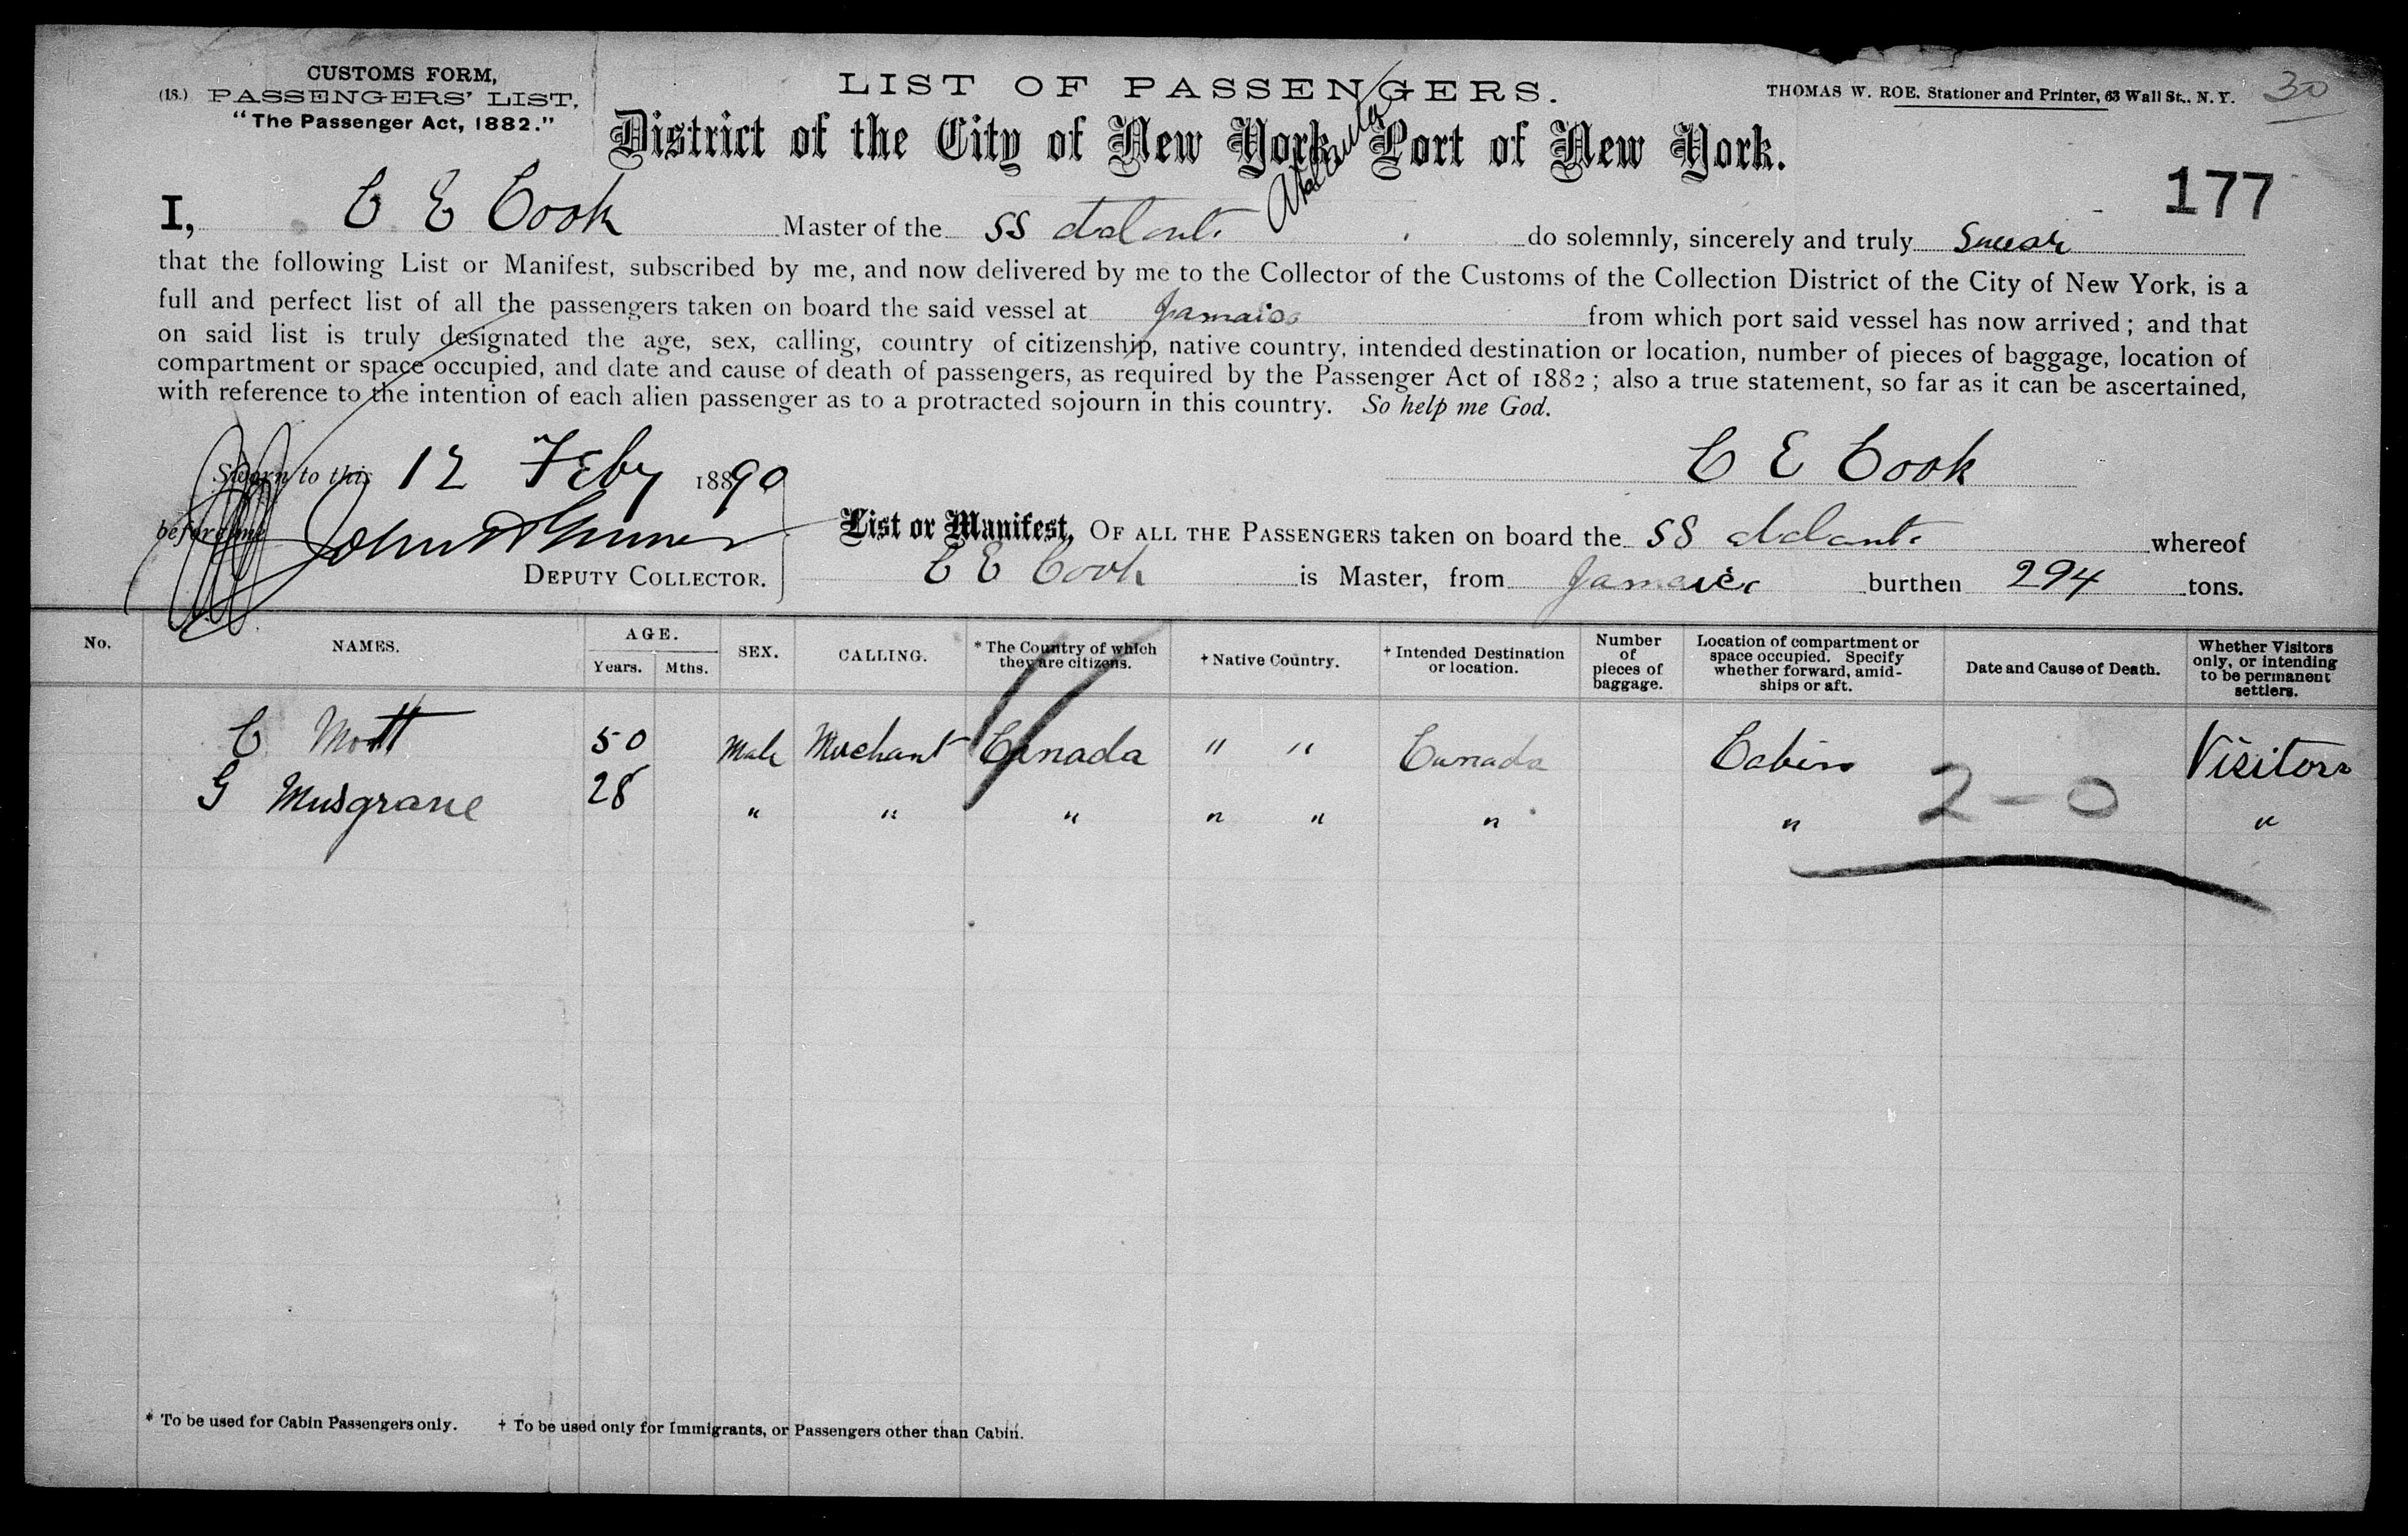 CUSTOMS FORM,
(18.) PASSENGERS' LIST,
"The Passenger Act, 1882."
LIST OF PASSENGERS.
THOMAS W. ROE. Stationer and Printer, 63 Wall St., N. Y.
30
District of the City of New York, Port of New York.
177
I, C E Cook Master of the SS do solemnly, sincerely and truly Swear
that the following List or Manifest, subscribed by me, and now delivered by me to the Collector of the Customs of the Collection District of the City of New York, is a
full and perfect list of all the passengers taken on board the said vessel at Jamaica from which port said vessel has now arrived; and that
on said list is truly designated the age, sex, calling, country of citizenship, native country, intended destination or location, number of pieces of baggage, location of
compartment or space occupied, and date and cause of death of passengers, as required by the Passenger Act of 1882; also a true statement, so far as it can be ascertained,
with reference to the intention of each alien passenger as to a protracted sojourn in this country. So help me God.
C E Cook
Sworn to this 12 Feby 1890
before me John
DEPUTY COLLECTOR.
List or Manifest, OF ALL THE PASSENGERS taken on board the SS whereof
C E Cook is Master, from Jamaica burthen 294 tons.
No. NAMES. AGE. Years. Mths. SEX. CALLING. * The Country of which they are citizens. † Native Country. † Intended Destination or location. Number of pieces of baggage. Location of compartment or space occupied. Specify whether forward, amidships or aft. Date and Cause of Death. Whether Visitors only, or intending to be permanent settlers.
C Mott 50 Male Merchant Canada " " Canada Cabin Visitors
G Musgrave 28 " " " " " " " "
2-0
* To be used for Cabin Passengers only. † To be used only for Immigrants, or Passengers other than Cabin.